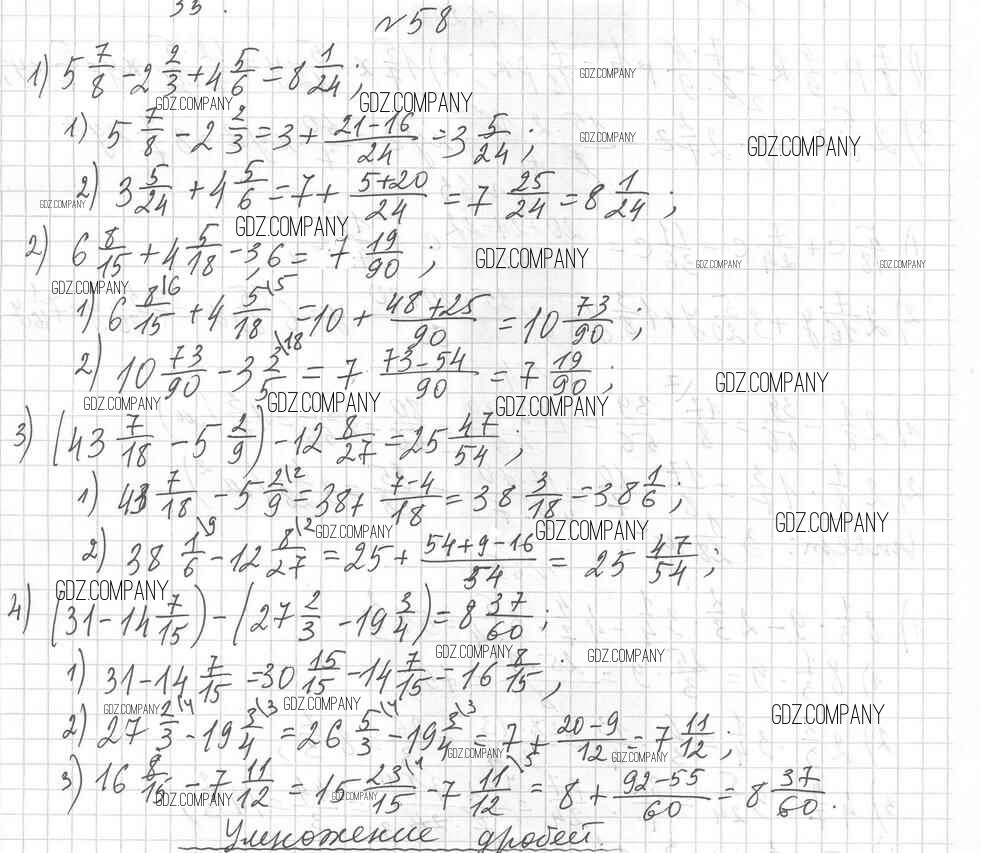 33.
№58
1) 5 7/8 - 2 2/3 + 4 5/6 = 8 1/24;
GDZ.COMPANY GDZ.COMPANY GDZ.COMPANY
1) 5 7/8 - 2 2/3 = 3 + (21-16)/24 = 3 5/24;
GDZ.COMPANY GDZ.COMPANY
2) 3 5/24 + 4 5/6 = 7 + (5+20)/24 = 7 25/24 = 8 1/24;
GDZ.COMPANY GDZ.COMPANY
2) 6 8/15 + 4 5/18 - 3,6 = 7 19/90;
GDZ.COMPANY GDZ.COMPANY GDZ.COMPANY GDZ.COMPANY
1) 6 8/15 \6 + 4 5/18 \5 = 10 + (48+25)/90 = 10 73/90;
2) 10 73/90 - 3 3/5 \18 = 7 (73-54)/90 = 7 19/90;
GDZ.COMPANY GDZ.COMPANY GDZ.COMPANY GDZ.COMPANY
3) (43 7/18 - 5 2/9) - 12 8/27 = 25 47/54;
1) 43 7/18 - 5 2/9 \2 = 38 + (7-4)/18 = 38 3/18 = 38 1/6;
GDZ.COMPANY GDZ.COMPANY GDZ.COMPANY
2) 38 1/6 \9 - 12 8/27 \2 = 25 + (54+9-16)/54 = 25 47/54;
GDZ.COMPANY
4) (31 - 14 7/15) - (27 2/3 - 19 3/4) = 8 37/60;
GDZ.COMPANY GDZ.COMPANY
1) 31 - 14 7/15 = 30 15/15 - 14 7/15 = 16 8/15;
GDZ.COMPANY GDZ.COMPANY GDZ.COMPANY
2) 27 2/3 \4 - 19 3/4 \3 = 26 5/3 \4 - 19 3/4 \3 = 7 + (20-9)/12 = 7 11/12;
GDZ.COMPANY GDZ.COMPANY
3) 16 8/15 - 7 11/12 = 15 23/15 \4 - 7 11/12 \5 = 8 + (92-55)/60 = 8 37/60.
GDZ.COMPANY GDZ.COMPANY
Умножение дробей.